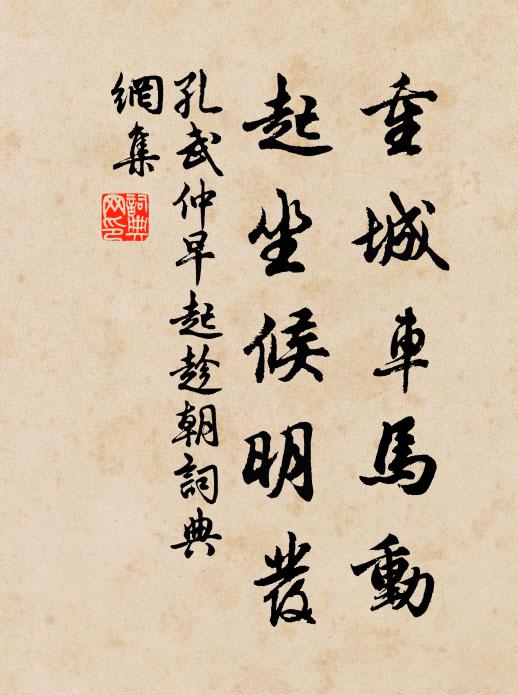 重城車馬動
起坐候明發
孔武仲早起趁朝詞典
網集
詞典
网印